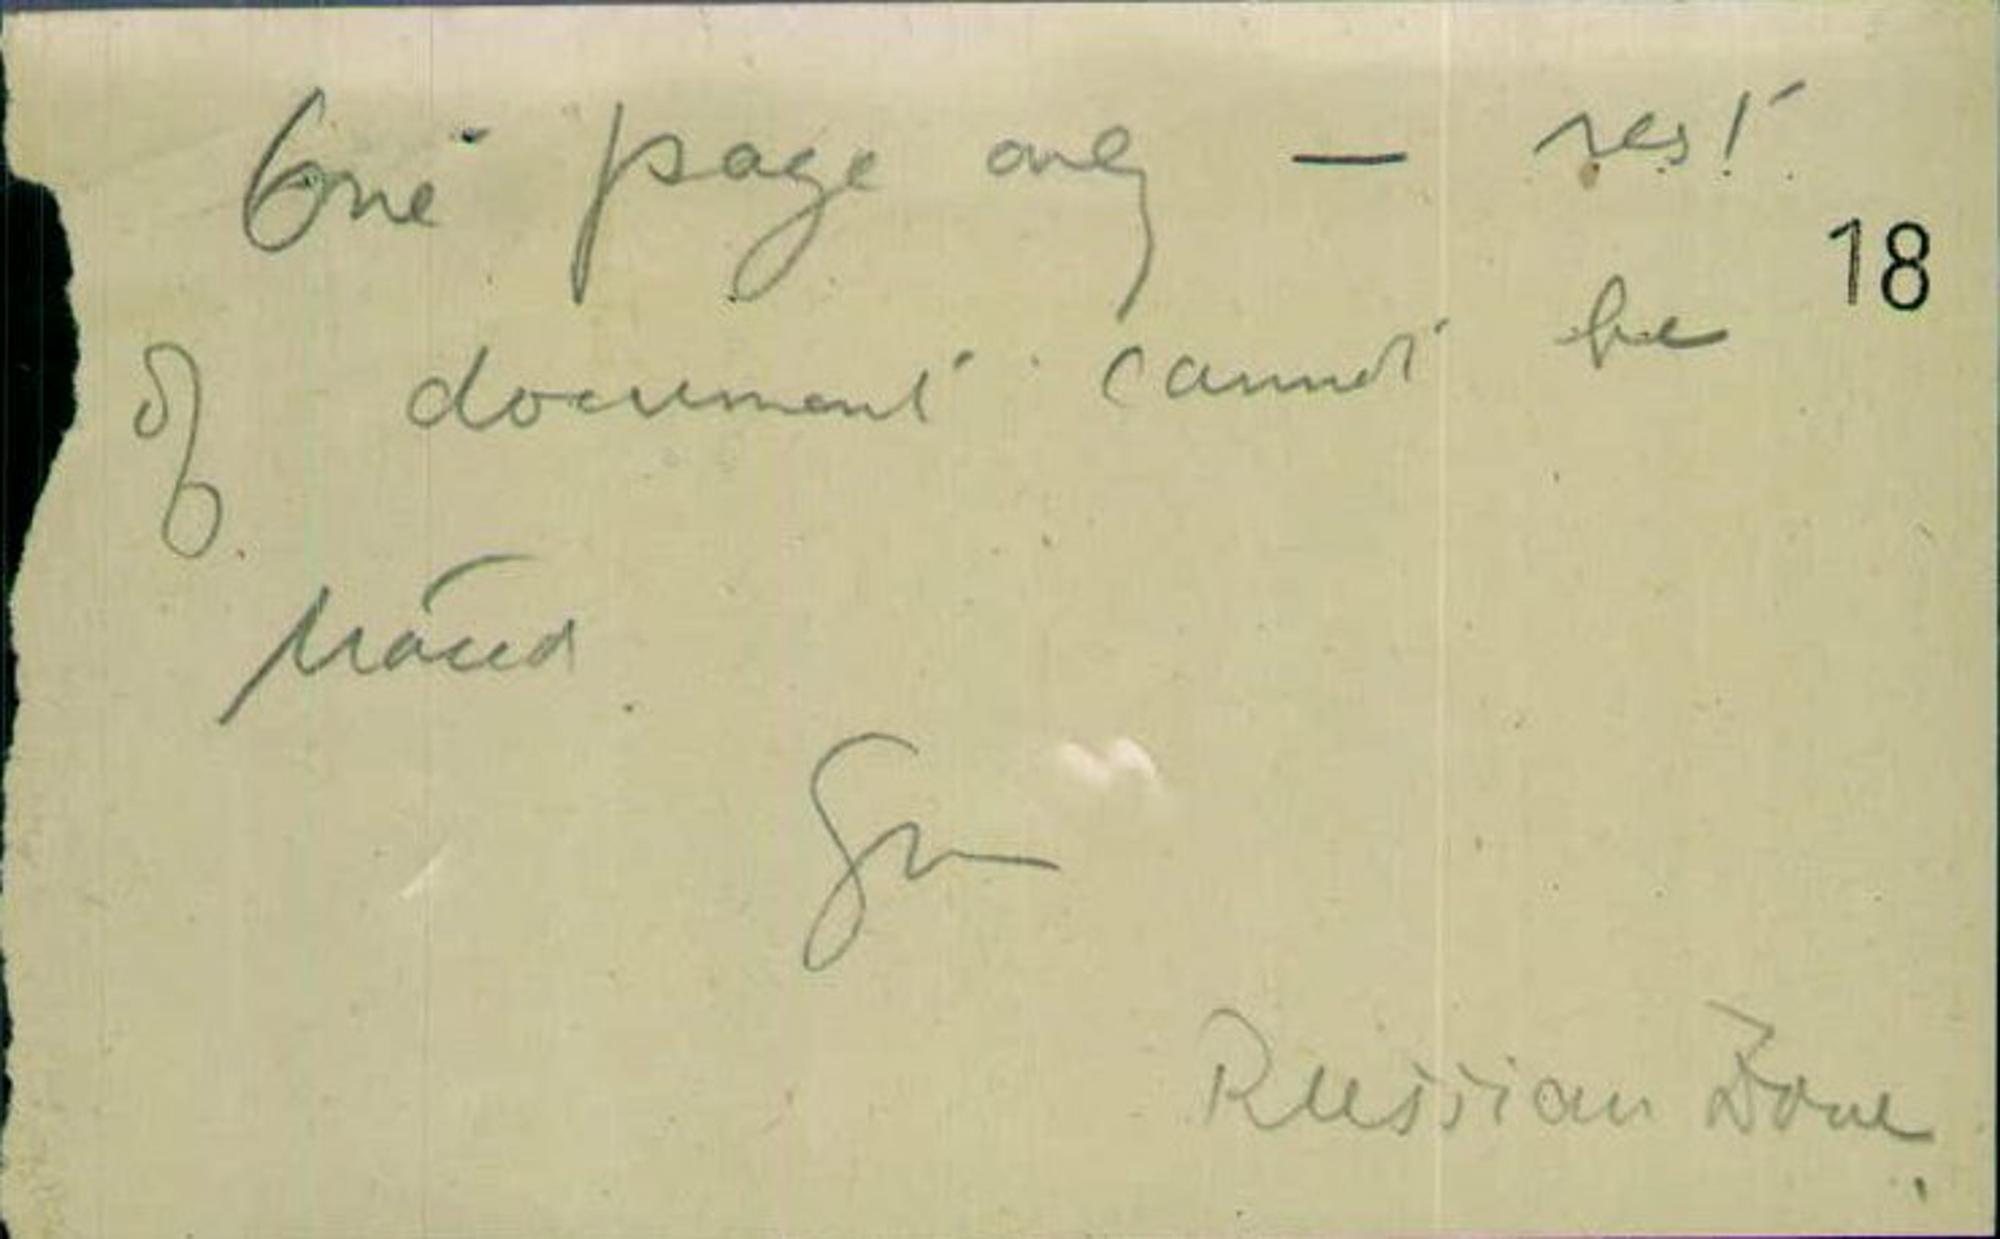 One page only — rest
18
of document cannot be
traced
Russian Zone